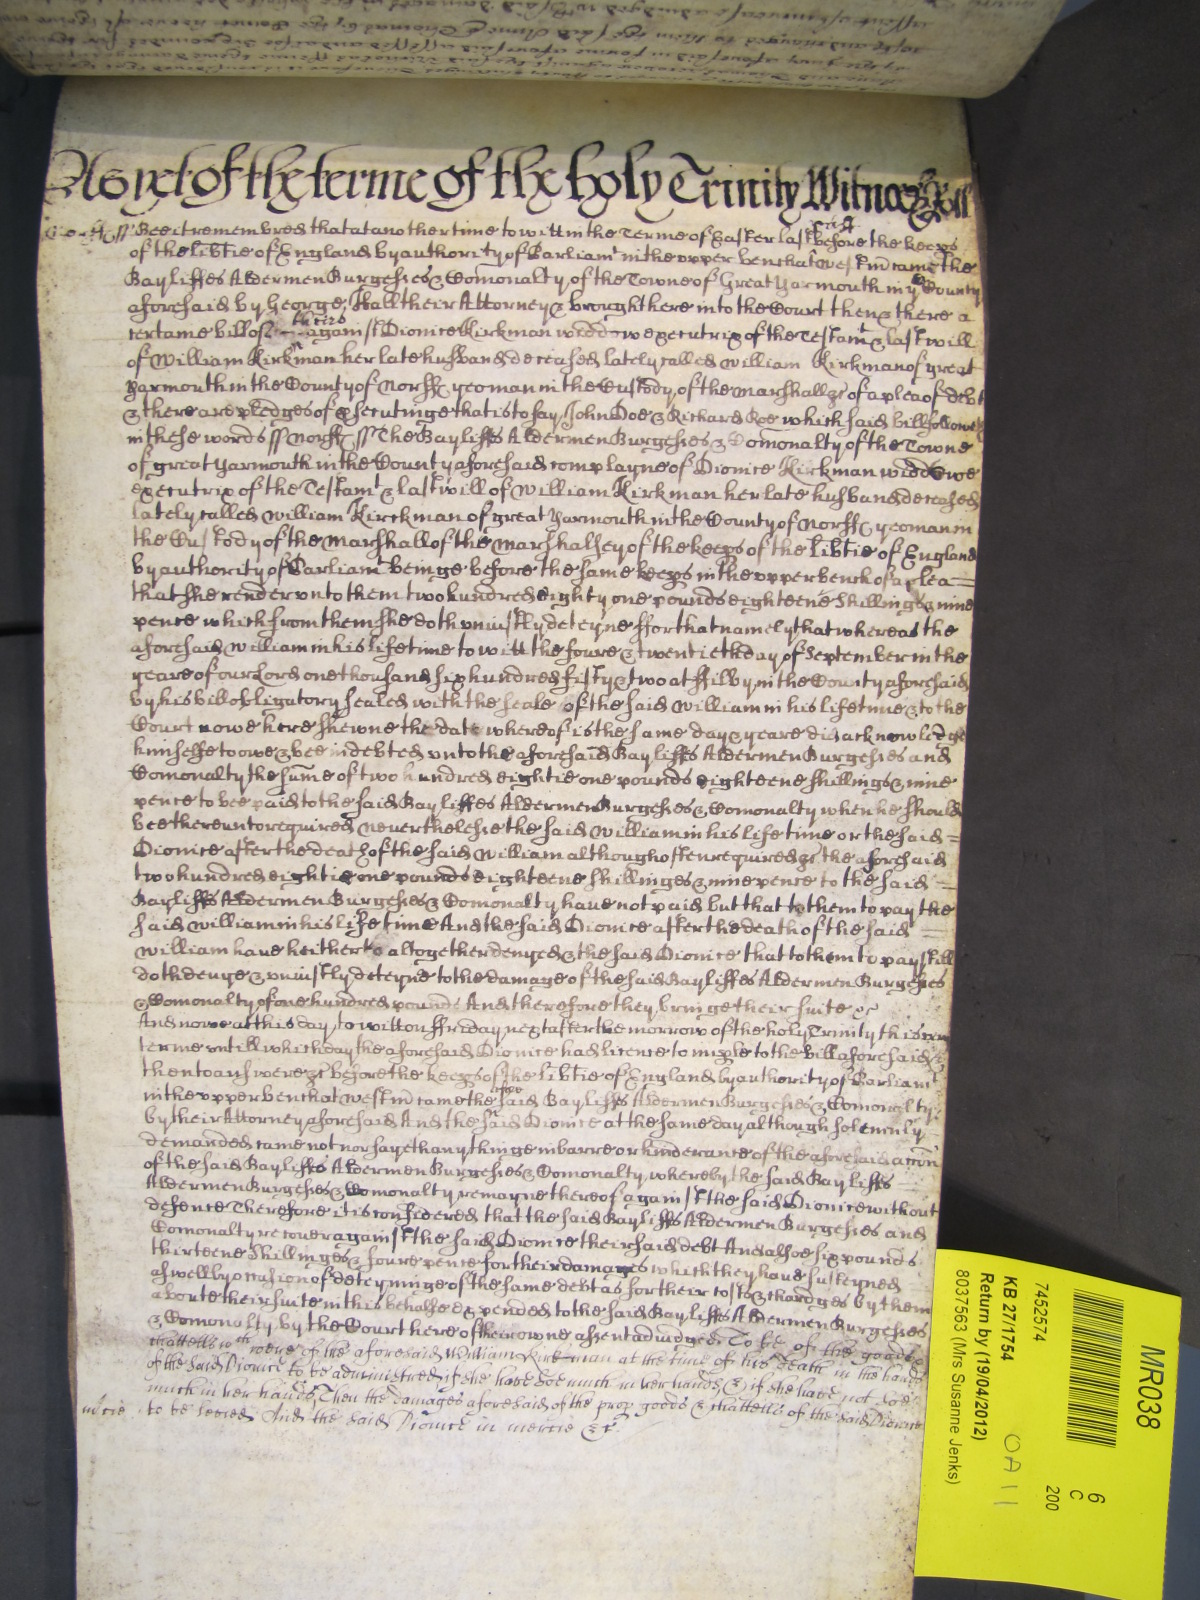 As yet of the terme of the holy Trinity Witnes Roll
Norff ss Bee it remembred that at another time to witt in the Terme of Easter last past before the keeps
of the libtie of England by authority of Parliamt in the upper bench at Westmr came the
Bayliffes Aldermen Burgesses & Comonalty of the Towne of Great Yarmouth in ye County
aforesaid by George Hall their Attorney & brought here into the Court then & there a
certaine bill of theirs against Dionice Kirkman widdow executrix of the Testamt & last will
of William Kirkman her late husband deceased lately called William Kirkman of great
Yarmouth in the County of Norff yeoman in the Custody of the Marshall &c of a plea of debt
& there are pledges of prosecutinge that is to say John Doe & Richard Roe which said bill followeth
in these words ss Norff ss The Bayliffs Aldermen Burgesses & Comonalty of the Towne
of great Yarmouth in the County aforesaid complayne of Dionice Kirkman widdowe
executrix of the Testamt & last will of William Kirkman her late husband deceased
lately called William Kirckman of great Yarmouth in the County of Norff yeoman in
the Custody of the Marshall of the Marshalsey of the keeps of the libtie of England
by authority of Parliamt beinge before the same keeps in the upper bench of a plea
that she render unto them two hundred eighty one pounds eighteene shillings & nine
pence which from them she doth uniustly deteyne ffor that namely that whereas the
aforesaid William in his life time to witt the foure & twentieth day of September in the
yeare of our Lord one thousand six hundred fifty & two at ffilby in the County aforesaid
by his bill obligatory sealed with the seale of the said William in his life time & to the
Court nowe here shewne the date whereof is the same day & yeare did acknowledge
himselfe to owe & bee indebted unto the aforesaid Bayliffs Aldermen Burgesses and
Comonalty the sume of two hundred eightie one pounds eighteene shillings & nine
pence to bee paid to the said Bayliffes Aldermen Burgesses & Comonalty when he should
bee thereunto required neverthelesse the said William in his life time or the said
Dionice after the death of the said William although often required &c the aforesaid
two hundred eightie one pounds eighteene shillinges & nine pence to the said
Bayliffs Aldermen Burgesses & Comonalty have not paid but that to them to pay the
said William in his life time And the said Dionice after the death of the said
William have hitherto altogether denyed & the said Dionice that to them to pay still
doth denye & uniustly deteyne to the damage of the said Bayliffes Aldermen Burgesses
& Comonalty of one hundred pounds And therefore they bringe their suite &c
And nowe at this day to witt on ffriday next after the morrow of the holy Trinity this same
terme untill which day the aforesaid Dionice had licence to imple to the bill aforesaid &
then to answere &c before the keeps of the libtie of England by authority of Parliamt
in the upper bench at Westmr came the said Bayliffs Aldermen Burgesses & Comonalty
by their Attorney aforesaid And the said Dionice at the same day although solemnly
demanded came not nor sayeth any thinge in barre or hinderance of the aforesaid accon
of the said Bayliffes Aldermen Burgesses & Comonalty whereby the said Bayliffs
Aldermen Burgesses & Comonalty remayne thereof against the said Dionice without
defence Therefore it is considered that the said Bayliffs Aldermen Burgesses and
Comonalty recover against the said Dionice their said debt And alsoe six pounds
thirteene shillinges & foure pence for their damages which they have susteyned
aswell by occasion of deteyninge of the same debt as for their costs & chardges by them
aboute their suite in this behalfe expended to the said Bayliffs Aldermen Burgesses
& Comonalty by the Court here of their owne assent adiudged To be of the goods &
chattells wch were of the aforesaid William Kirkman at the time of his death in the hands
of the said Dionice to be administred if she have soe much in her hands & if she have not soe
much in her hands Then the damages aforesaid of the prop goods & chattells of the said Dionice
mcie to be levied And the said Dionice in mercie &c
MR038
7452574
KB 27/1754
Return by (19/04/2012)
8037563 (Mrs Susanne Jenks)
6
C
200
OA 11